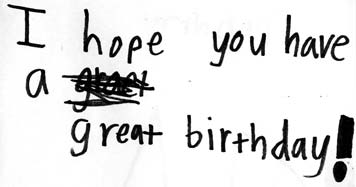 I hope you have
a
great birthday!